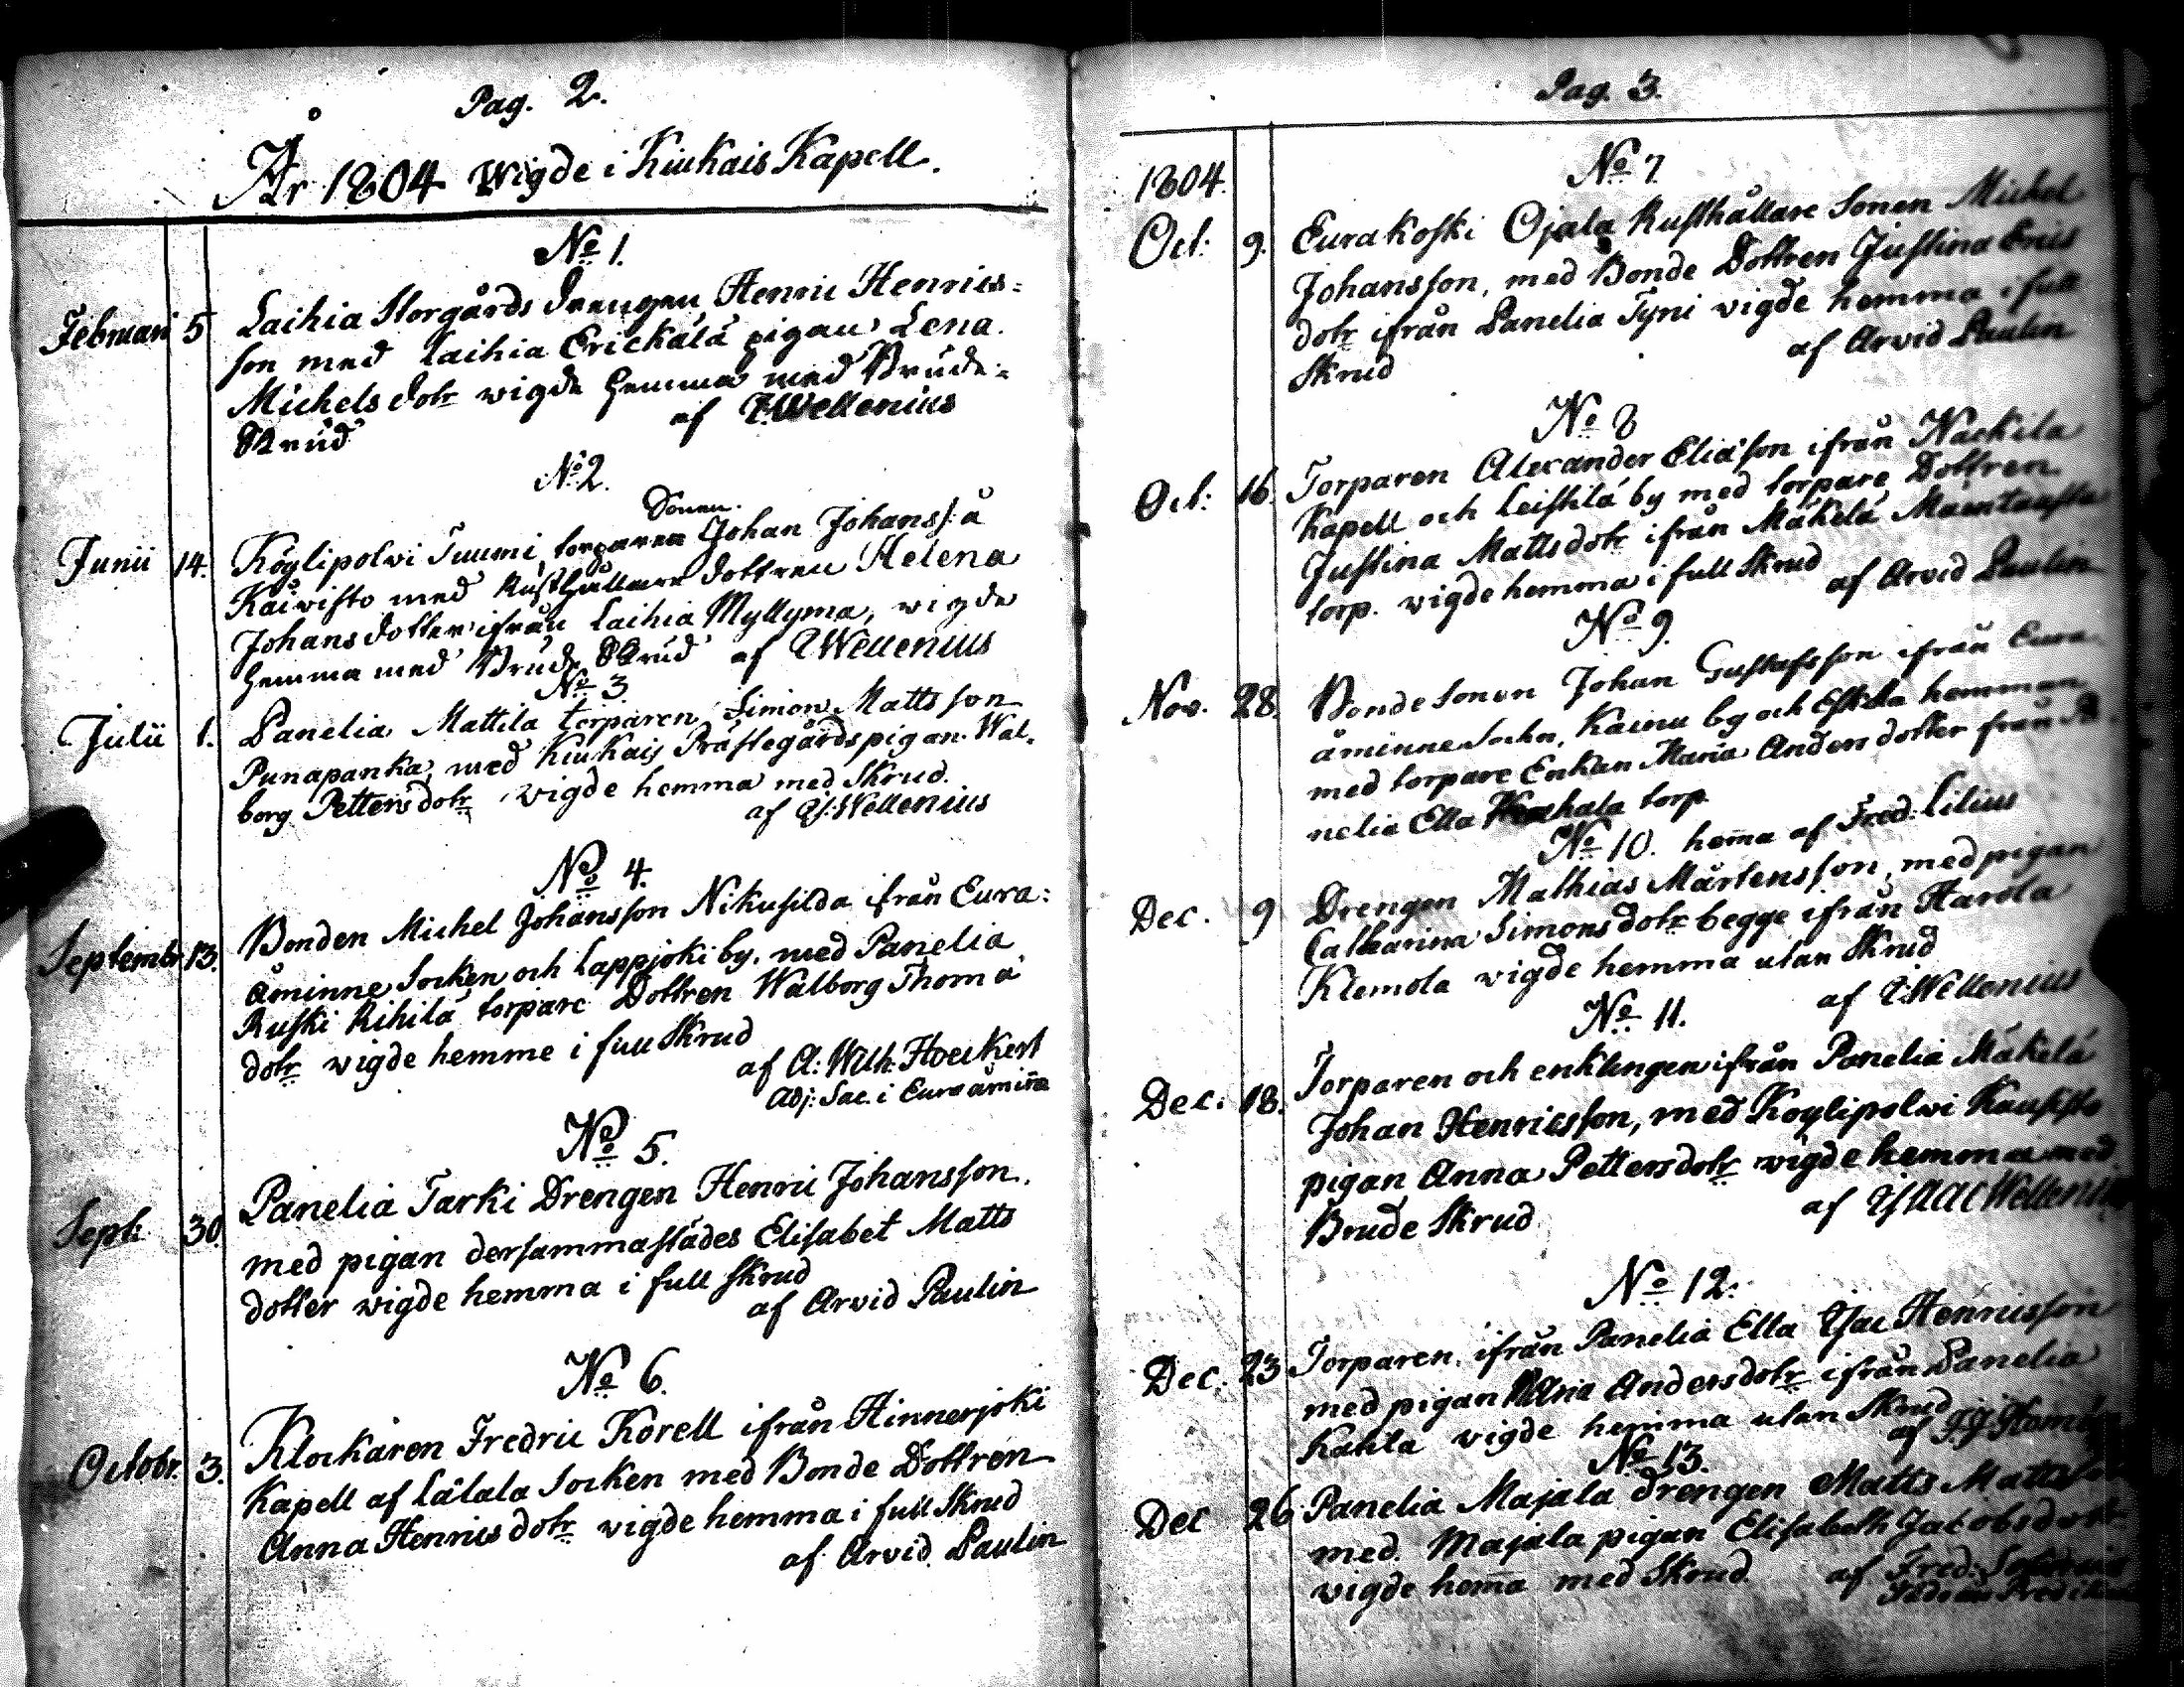 Pag. 2.
År 1804 Wigde i Kiukais Kapell.
No 1.
Februari 5 Laihia Storgårds Drengen Henric Henrics=
son med Laihia Erickälä pigan Lena
Michelsdotr wigde hemma med Brude=
Skrud af I. Wellenius
No 2.
Sonen
Junii 14. Köylipolvi Tuumi torparen Johan Johanss: å
Käivisto med Rusthållare dottren Helena
Johansdotter ifrån Laihia Myllymä, wigde
hemma med Brude Skrud af I Wellenius
No 3
Julii 1. Panelia Mattila torparen Simon Mattsson
Punapanka, med Kiukais Prästegårds pigan Wal=
borg Pettersdotr vigde hemma med Skrud.
af Is: Wellenius
No 4.
Septembr 13. Bonden Michel Johansson Nikusilda ifrån Eura=
åminne Socken och Lappjoki by, med Panelia
Ruski Rihilä torpare Dottren Walborg Thomä
dotr vigde hemme i full Skrud
af A: Wilh: Hoeckert
Adj: Sac. i Euraåmiñe
No 5.
Sept: 30. Panelia Tarki Drengen Henric Johansson.
med pigan dersammastädes Elisabet Matts
dotter vigde hemma i full skrud
af Arvid Paulin
No 6.
Octobr. 3. Klockaren Fredric Korell ifrån Hinnerjoki
Kapell af Lälala Socken med Bonde Dottren
Anna Henricsdotr vigde hemma i full Skrud
af Arvid Paulin
Pag. 3.
1804. No 7.
Oct: 9. Eurakoski Ojala Rusthållare Sonen Michel
Johansson, med Bonde Dottren Justina Erics
dotr ifrån Panelia Tyni vigde hemma i full
Skrud af Arvid Paulin
No 8
Oct: 16. Torparen Alexander Eliäson ifrån Nackila
Kapell och Leistilä by med torpare Dottren
Justina Mattsdotr ifrån Mäkilä
torp. vigde hemma i full Skrud af Arvid Paulin
No 9.
Nov. 28. Bonde Sonen Johan Gustafsson ifrån Eura
åminne Sockn, Kainu by och Eskila hemman
med torpare Enkan Maria Anders dotter från Pa
nelia Ella torp.
No 10. hem̃a af Fred: Lilius
Dec. 9 Drengen Mathias Mårtensson, med pigan
Catharina Simonsdotr begge ifrån Harola
Klemola vigde hemma utan Skrud
af I: Wellenius
No 11.
Dec. 18. Torparen och enklingen ifrån Panelia Mäkelä
Johan Henricsson, med Köylipolvi Kauristo
pigan Anna Pettersdotr vigde hemma med
Brude Skrud af Isaac Wellenius
No 12.
Dec. 23 Torparen, ifrån Panelia Ella Isac Henricsson
med pigan Maria Andersdotr ifrån Panelia
Kahla vigde hemma utan Skrud
af
No 13.
Dec 26 Panelia Majala Drengen Matts Mattsson
med Majala pigan Elisabeth Jacobsdotr
vigde hem̃a med Skrud. af Fred: